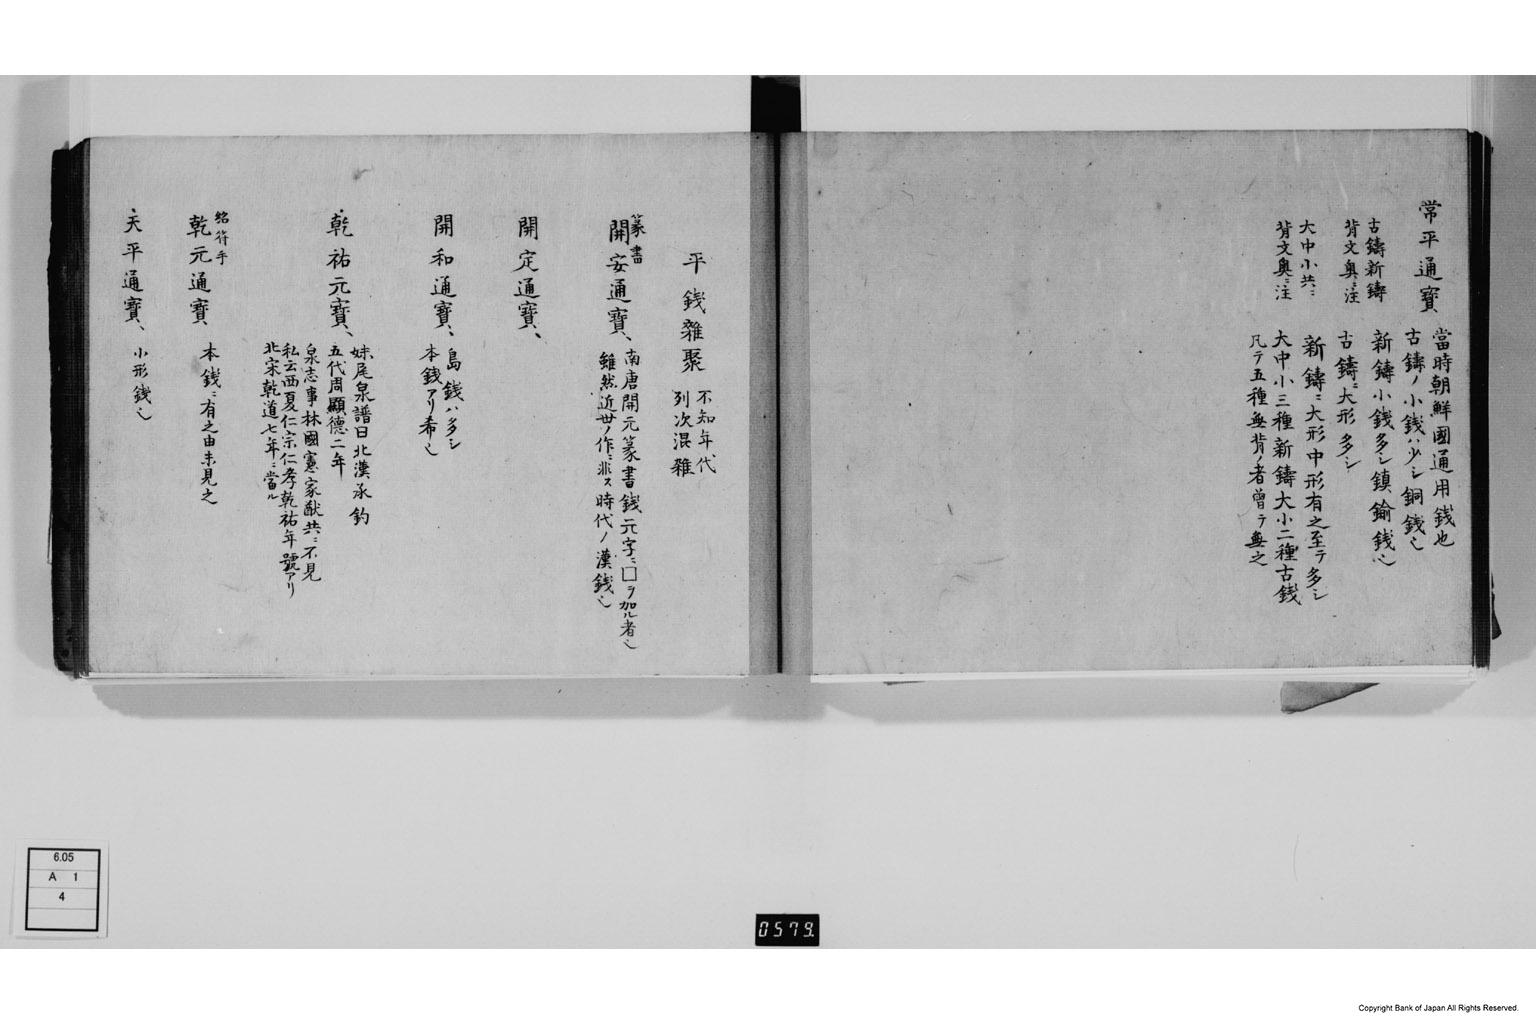 常平通寳
當時朝鮮國通用銭也
古鑄ノ小銭ハ少シ銅銭也
古鑄新鑄
背文奥ニ注
新鑄小銭多シ鎮鍮銭也
古鑄ニ大形多シ
大中小共ニ
背文奥ニ注
新鑄ニ大形中形有之至テ多シ
大中小三種新鑄大小二種古銭
凡テ五種無背ノ者曽テ無之
平銭雜聚
不知年代
列次混雜
篆書
開安通寳、
南唐開元篆書銭元字ニ□ヲ加ル者也
雖然近世ノ作ニ非ス時代ノ漢銭也
開定通寳、
開和通寳、
島銭ハ多シ
本銭アリ希也
乾祐元寳、
妹尾泉譜曰北漢承鈞
五代周顯德二年
泉志事林國憲家猷共ニ不見
私云西夏仁宗仁孝乾祐年號アリ
北宋乾道七年ニ當ル
紹符手
乾元通寳
本銭ニ有之由未見之
天平通寳、
小形銭也
6.05
A 1
4
0579.
Copyright Bank of Japan All Rights Reserved.